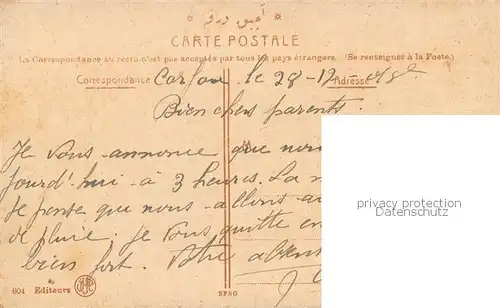 CARTE POSTALE
La Correspondance au recto n'est pas acceptée par tous les pays étrangers. (Se renseigner à la Poste.)
Correspondance
Adresse
Corfou le 28-12
Bien chers parents.
Je vous annonce que nous
jourd'hui à 3 heures. La
Je pense que nous allons
de pluie; je vous quitte en
bien fort. Votre
privacy protection
Datenschutz
604 Editeurs